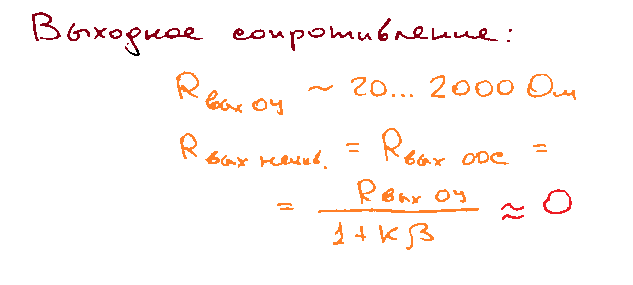 Выходное сопротивление:
Rвых оу ~ 20... 2000 Ом
Rвых неинв. = Rвых оос =
= Rвых оу / (1 + Kβ) ≈ 0